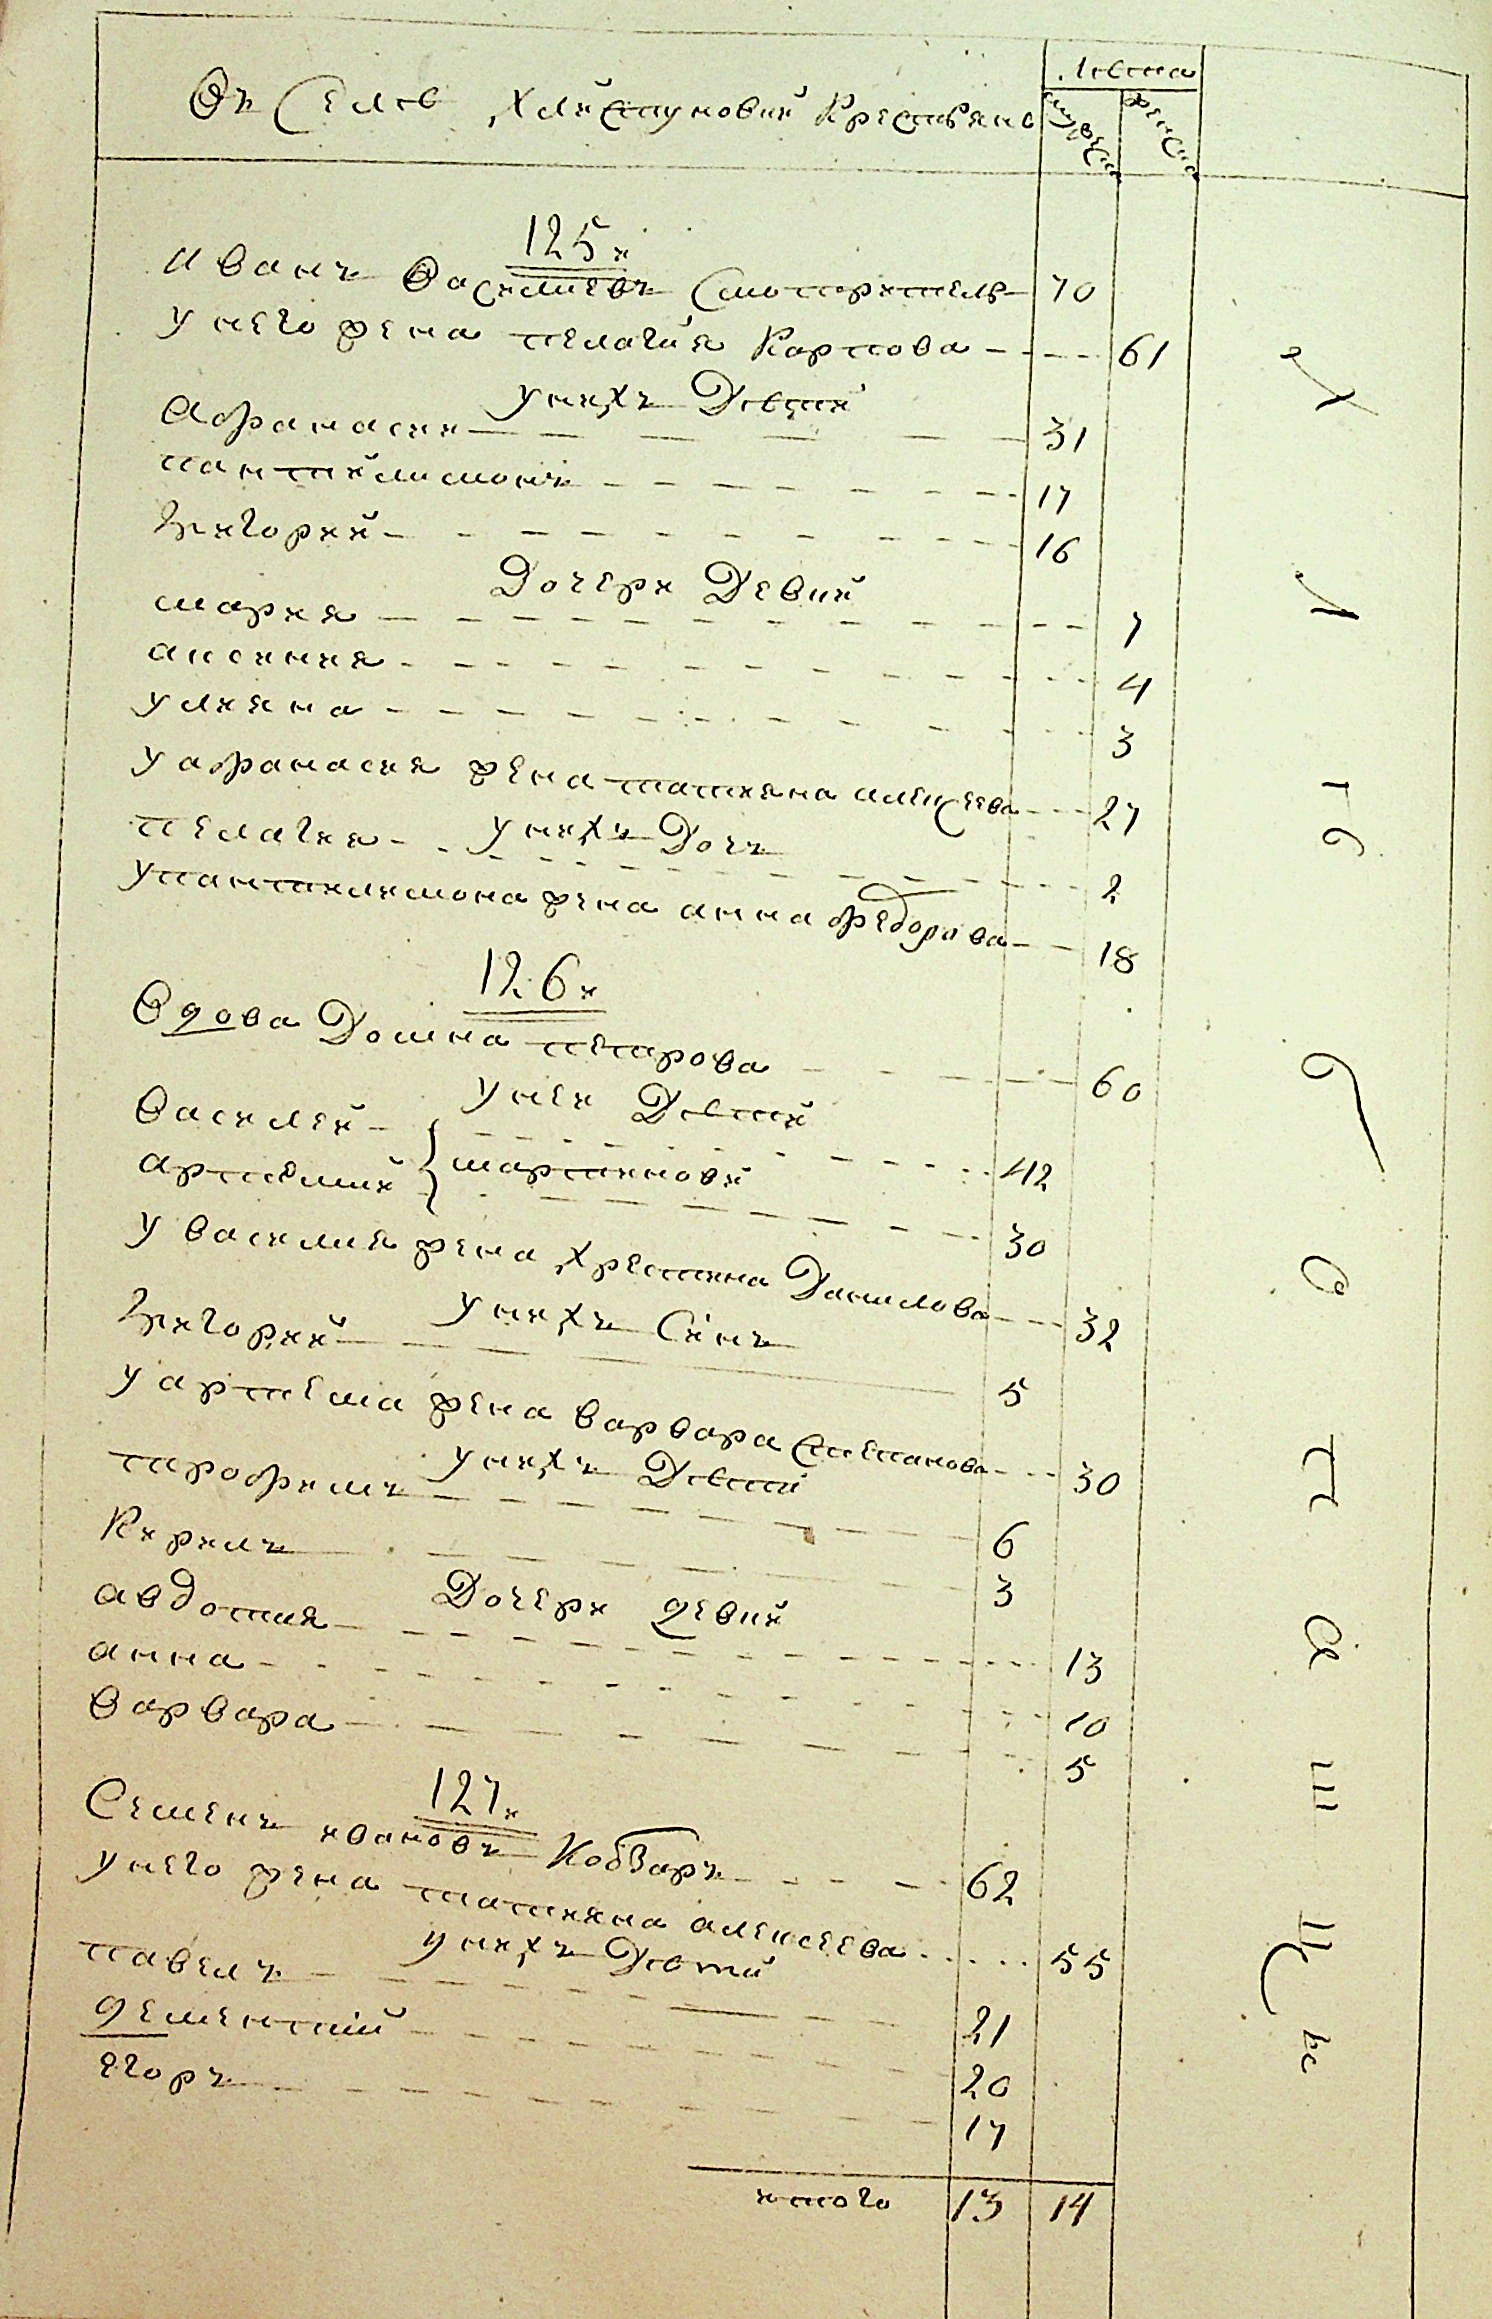 Въ Селѣ Хлистуновки Крестьянъ
Лѣта
мужеска
женска
125й
Иванъ Василиевъ Смотритель 70
У него жена пелагия Карпова 61
у нихъ Дѣти
Афанасий 31
пантилимонъ 17
Григорий 16
Дочери Девки
мария 7
ксения 4
улияна 3
у афанасия жена татияна алексеева 27
у нихъ Дочь
пелагия 2
у пантилимона жена анна федорова 18
126й
Вдова Домна петрова 60
у ней Дѣти
Василей 42
мартинови
артемий 30
у василия жена христина Данилова 32
у нихъ Синъ
Григорий 5
у артема жена варвара степанова 30
у нихъ Дѣти
трофимъ 6
Кирилъ 3
Дочери девки
авдотия 13
анна 10
варвара 5
127й
Семенъ ивановъ Кобзаръ 62
у него жена татияна алексеева 55
у нихъ Дѣти
павелъ 21
дементий 20
егоръ 17
итого 13 14